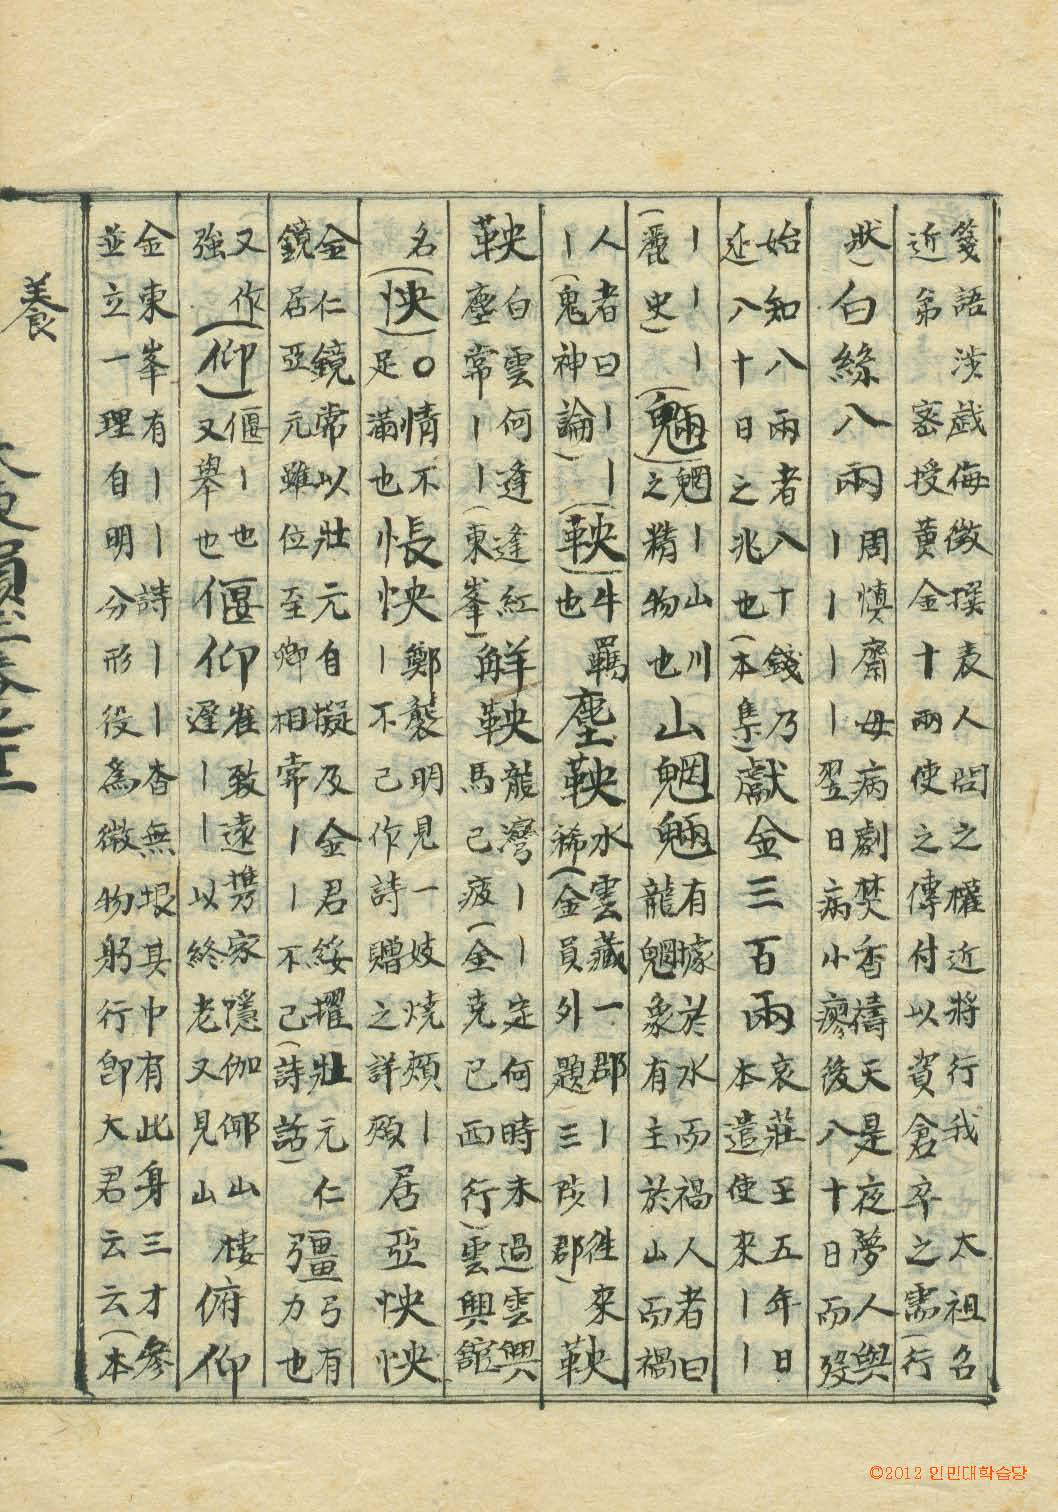 箋語涉戱侮徵撰表人問之權近將行我 太祖召
近第密授黃金十兩使之傳付以資倉卒之需(行
狀)白絲八兩周愼齋母病劇焚香禱天是夜夢人與
丨丨丨丨翌日病小瘳後八十日而歿
始知八兩者八十錢乃
延八十日之兆也(本集)獻金三百兩哀莊王五年日
本遣使來丨丨
丨丨丨
(麗史)(魎)魍丨山川
之精物也山魍魎有據於水而禍人者曰
龍魍象有主於山而禍
人者曰丨丨
丨(鬼神論)(鞅)牛羈
也塵鞅水雲藏一郡丨丨徃來
稀(金員外題三陟郡)鞅
鞅白雲何逢逢紅
塵常丨丨(東峯)解鞅龍灣丨丨定何時未過雲興
馬已疲(金克已西行)雲興館
名(怏)○情不
足滿也悵怏鄭襲明見一妓燒頰丨
丨不己作詩贈之詳頰居亞怏怏
金仁鏡常以壯元自擬及金君綏擢壯元仁
鏡居亞元雖位至卿相常丨丨不己(詩話)彊弓有
力也
又作
強(仰)偃丨也
又舉也偃仰崔致遠携家隱伽倻山
遲丨丨以終老又見山樓俯仰
金東峯有丨丨詩丨丨杳無垠其中有此身三才參
並立一理自明分形役爲微物躬行卽大君云云(本
養
©2012 인민대학습당